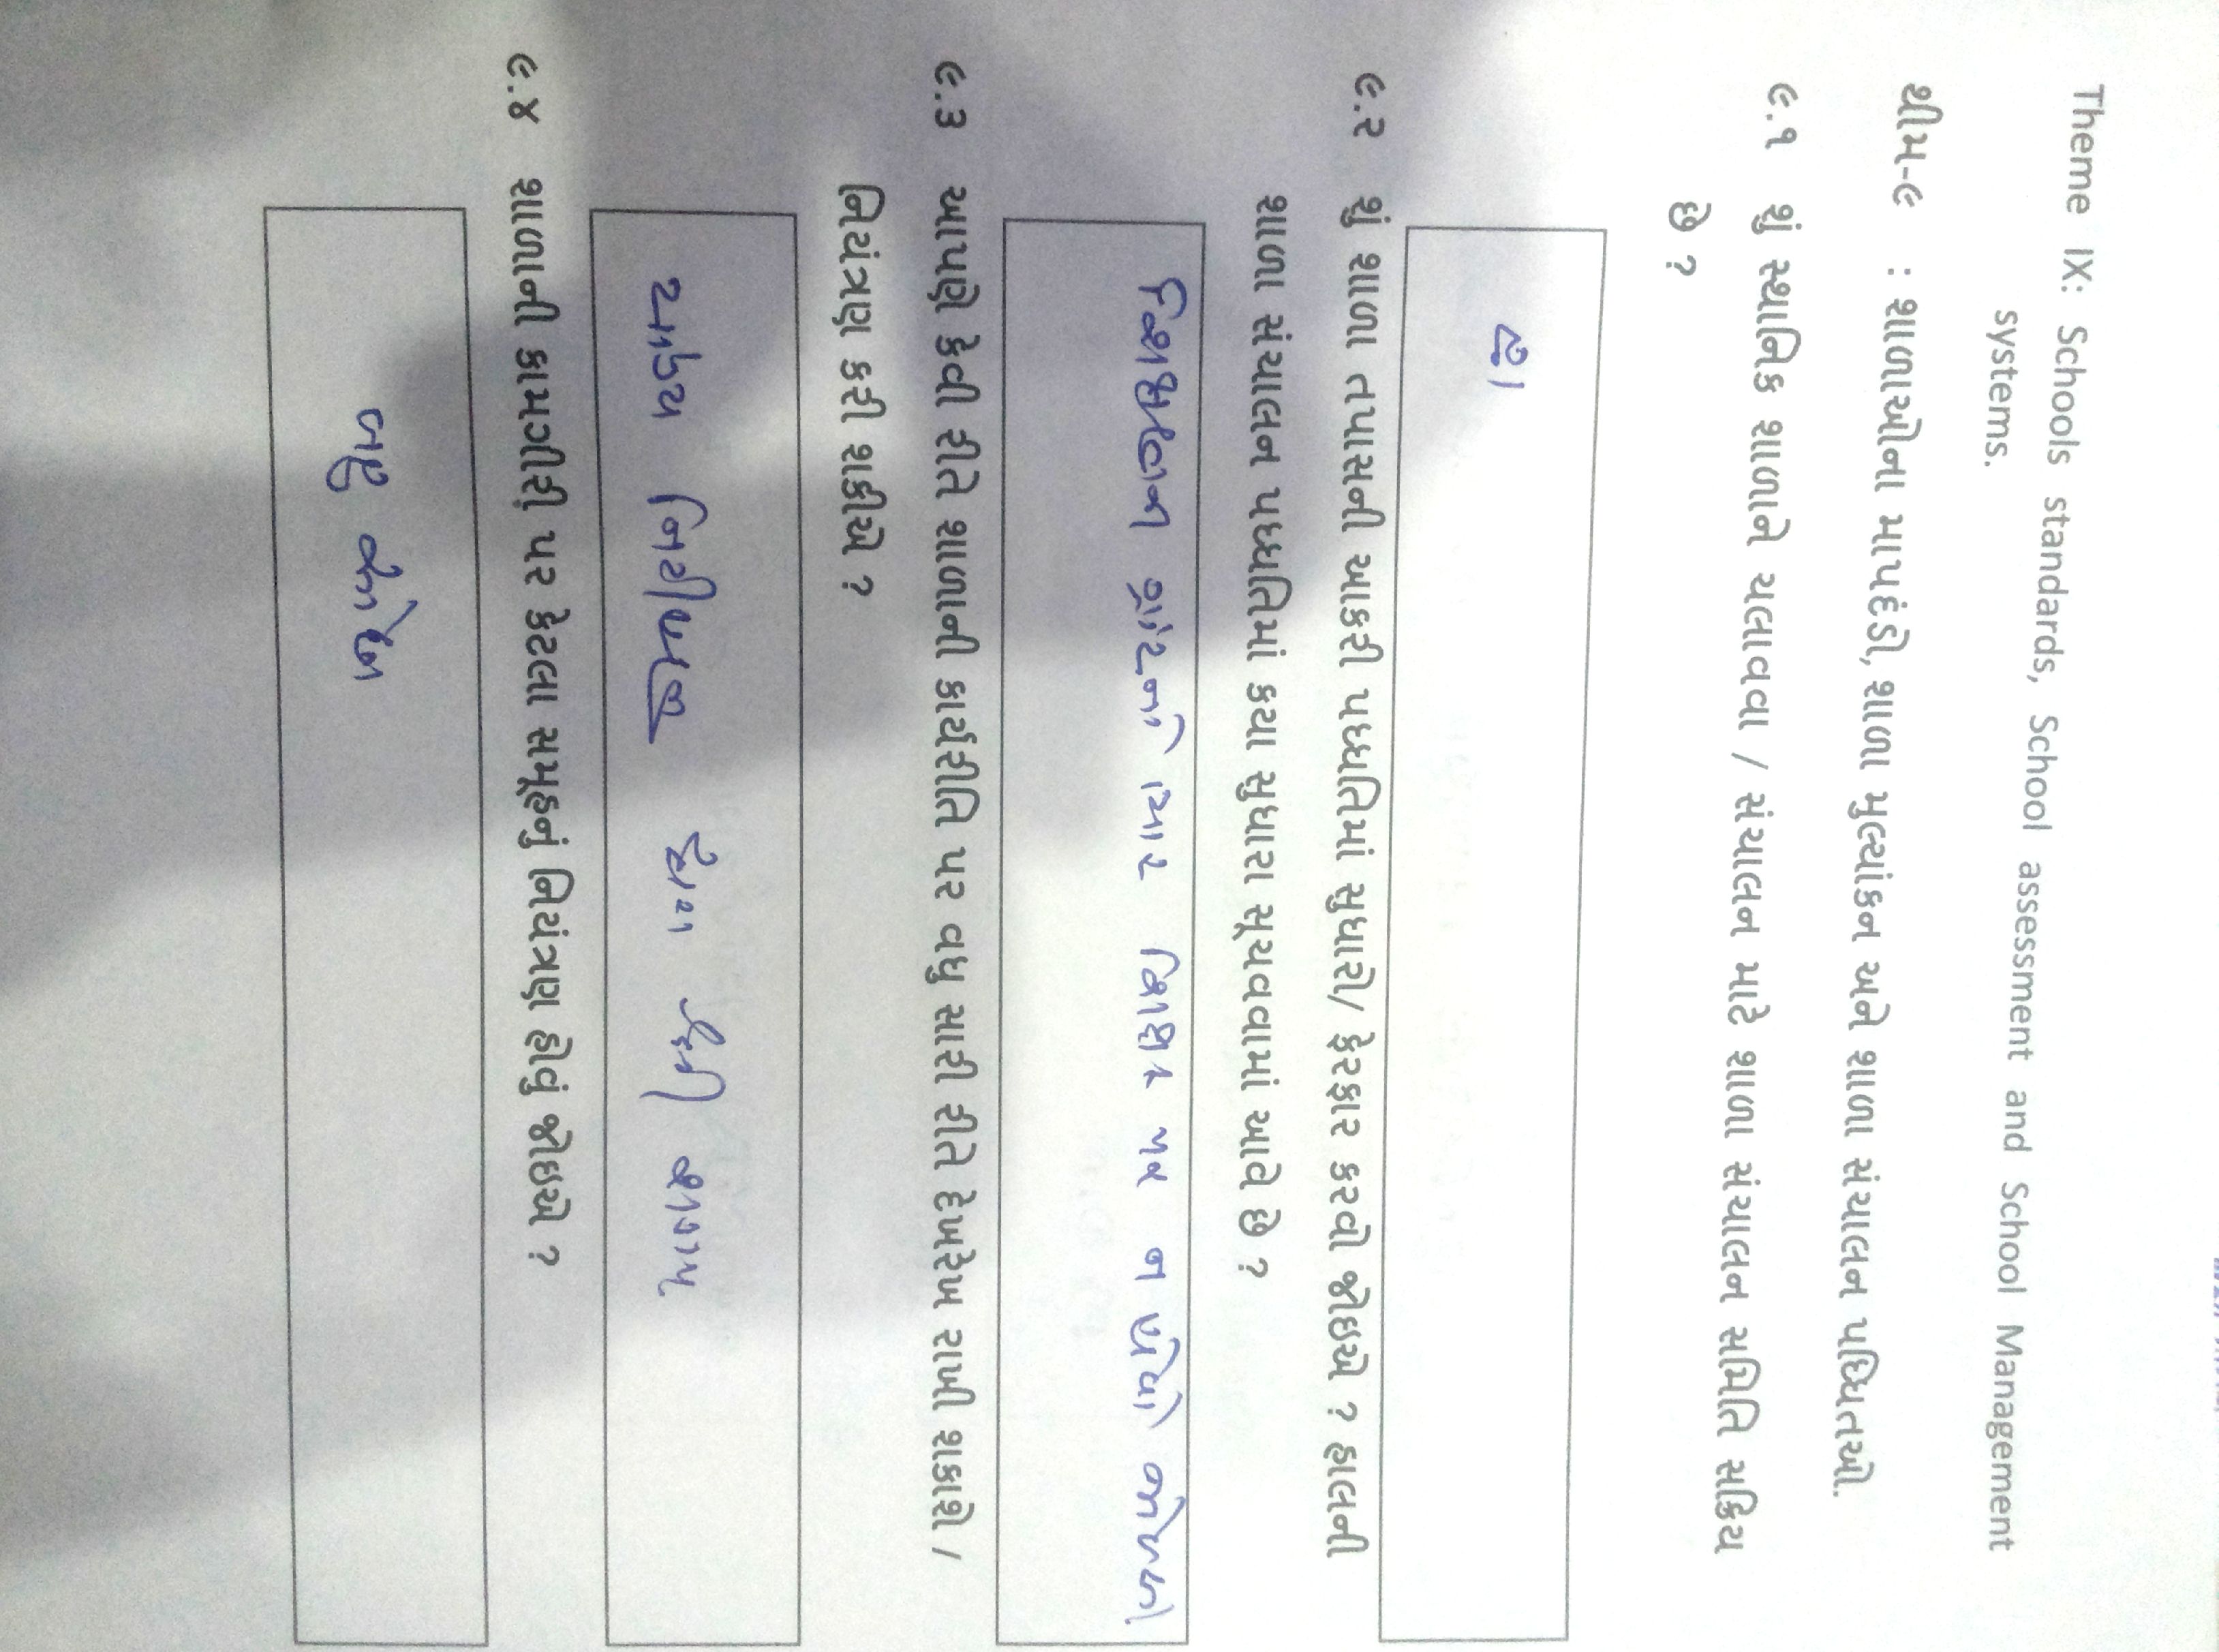 Theme IX: Schools standards, School assessment and School Management
systems.
થીમ-૯ : શાળાઓના માપદંડો, શાળા મુલ્યાંકન અને શાળા સંચાલન પધ્ધિતઓ.
૯.૧ શું સ્થાનિક શાળાને ચલાવવા / સંચાલન માટે શાળા સંચાલન સમિતિ સક્રિય
છે ?
હા
૯.૨ શું શાળા તપાસની આકરી પધ્ધતિમાં સુધારો/ ફેરફાર કરવો જોઇએ ? હાલની
શાળા સંચાલન પધ્ધતિમાં કયા સુધારા સૂચવવામાં આવે છે ?
ગ્રાંટનો ભાર શિક્ષક પર ન
૯.૩ આપણે કેવી રીતે શાળાની કાર્યરીતિ પર વધુ સારી રીતે દેખરેખ રાખી શકાશે /
નિયંત્રણ કરી શકીએ ?
દ્વારા
૯.૪ શાળાની કામગીરી પર કેટલા સમૂહનું નિયંત્રણ હોવું જોઇએ ?